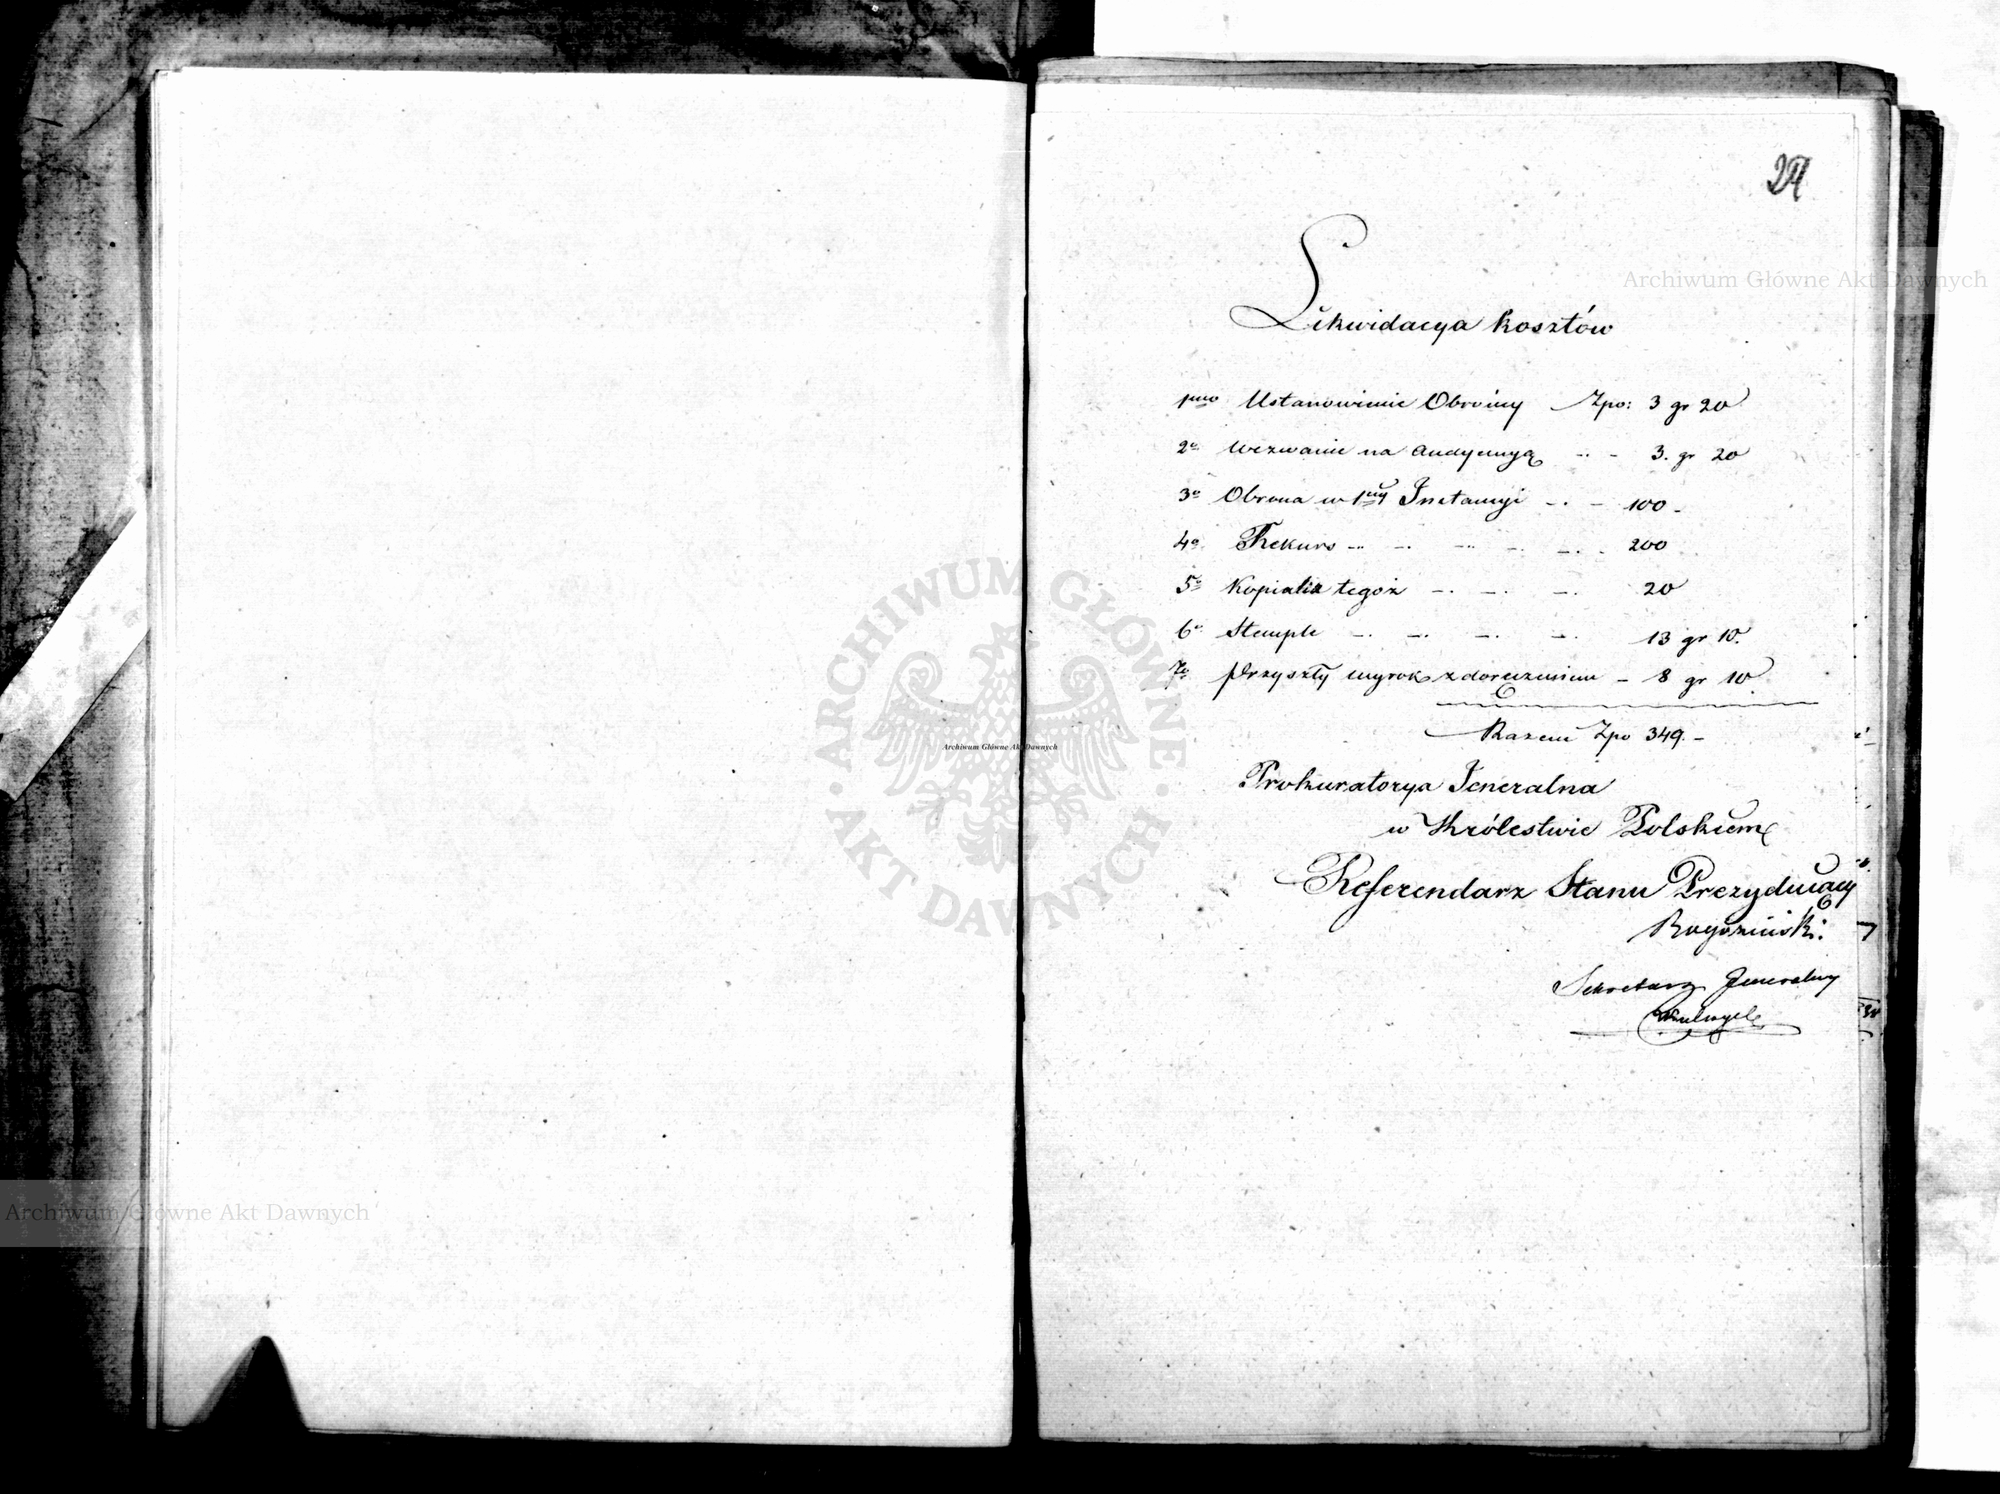 Likwidacya kosztów
1mo Ustanowienie Obrońcy Złpo: 3 gr 20
2o Wezwanie na audyencyą 3. gr 20
3o Obrona w 1ey Instancyi 100
4o Rekurs 200
5o Kopialia tegoż 20
6o Stemple 13 gr 10.
7o przyszły wyrok z doręczeniem 8 gr 10
Razem Złpo 349.
Prokuratorya Jeneralna
w Królestwie Polskiem
Referendarz Stanu Prezydujący
Rogoziński.
Sekretarz Jeneralny
Archiwum Główne Akt Dawnych
ARCHIWUM GŁÓWNE AKT DAWNYCH
Archiwum Główne Akt Dawnych
Archiwum Główne Akt Dawnych